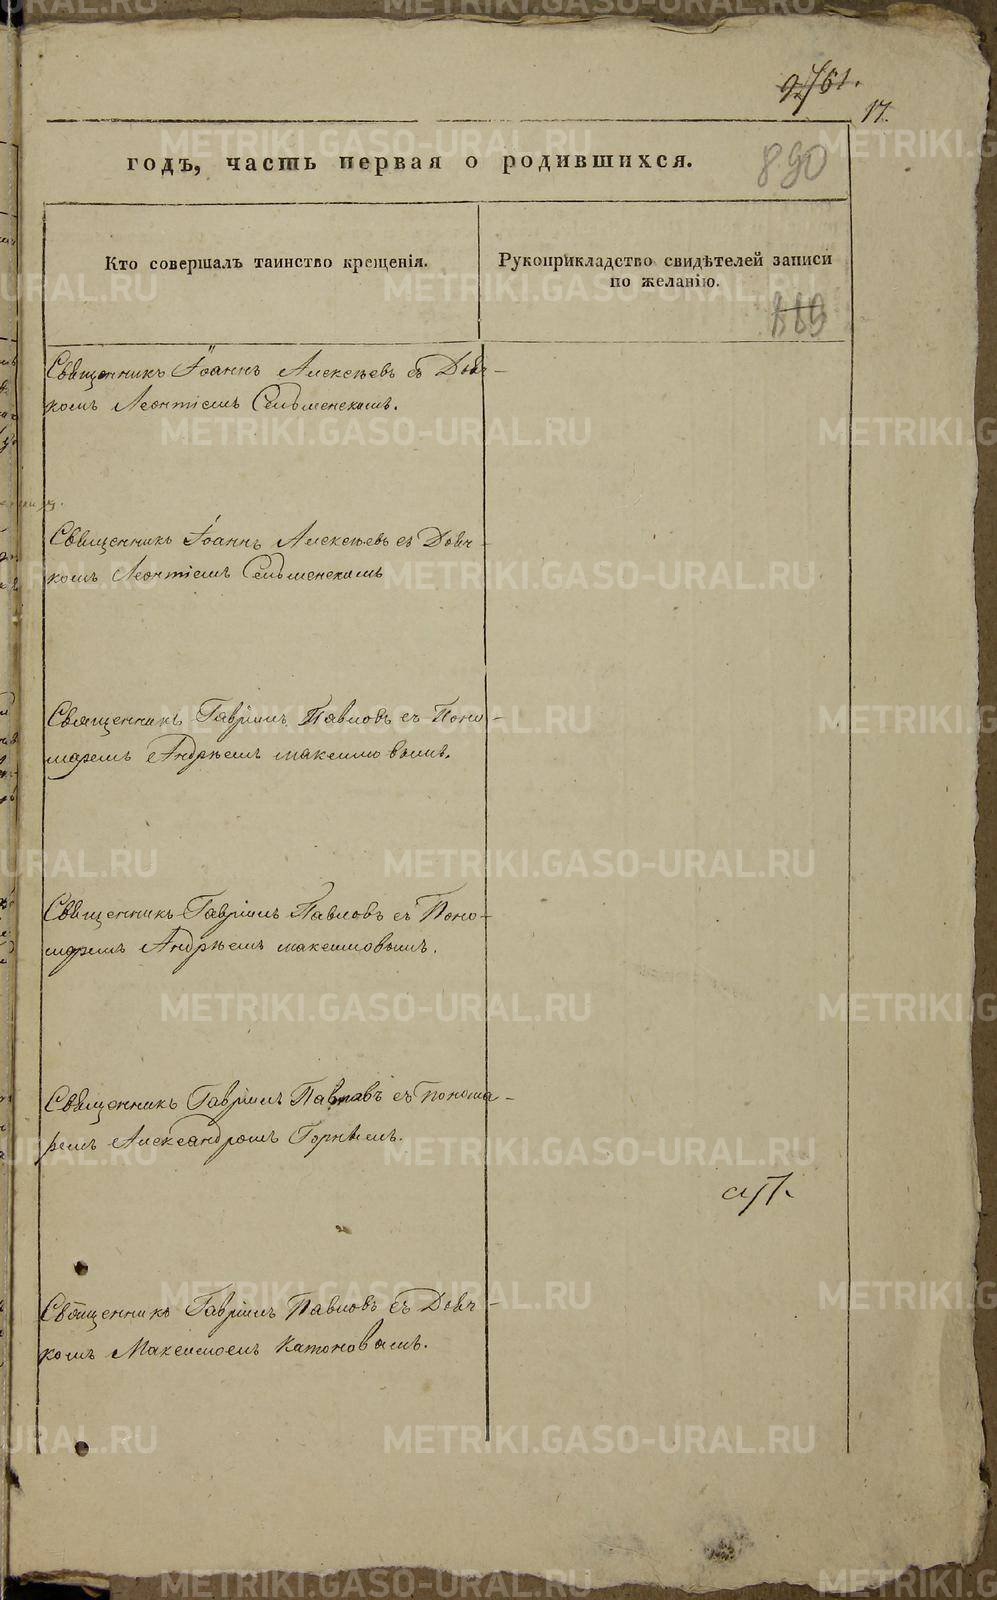 17.
годъ, часть первая о родившихся.
890
Кто совершалъ таинство крещенія.
Рукоприкладство свидѣтелей записи
по желанію.
889
Священникъ Іоаннъ Алексѣевъ съ Дьяч-
комъ Леонтіемъ Сельменскимъ.
Священникъ Іоаннъ Алексѣевъ съ Дьяч-
комъ Леонтіемъ Сельменскимъ
Священникъ Гавріилъ Павловъ съ Поно-
маремъ Андрѣемъ Максимовымъ.
Священникъ Гавріилъ Павловъ съ Поно-
маремъ Андрѣемъ Максимовымъ.
Священникъ Гавріилъ Павловъ съ понома-
ремъ Александромъ Горнымъ.
Священникъ Гавріилъ Павловъ съ Дьяч-
комъ Максимомъ Катоновымъ.
METRIKI.GASO-URAL.RU